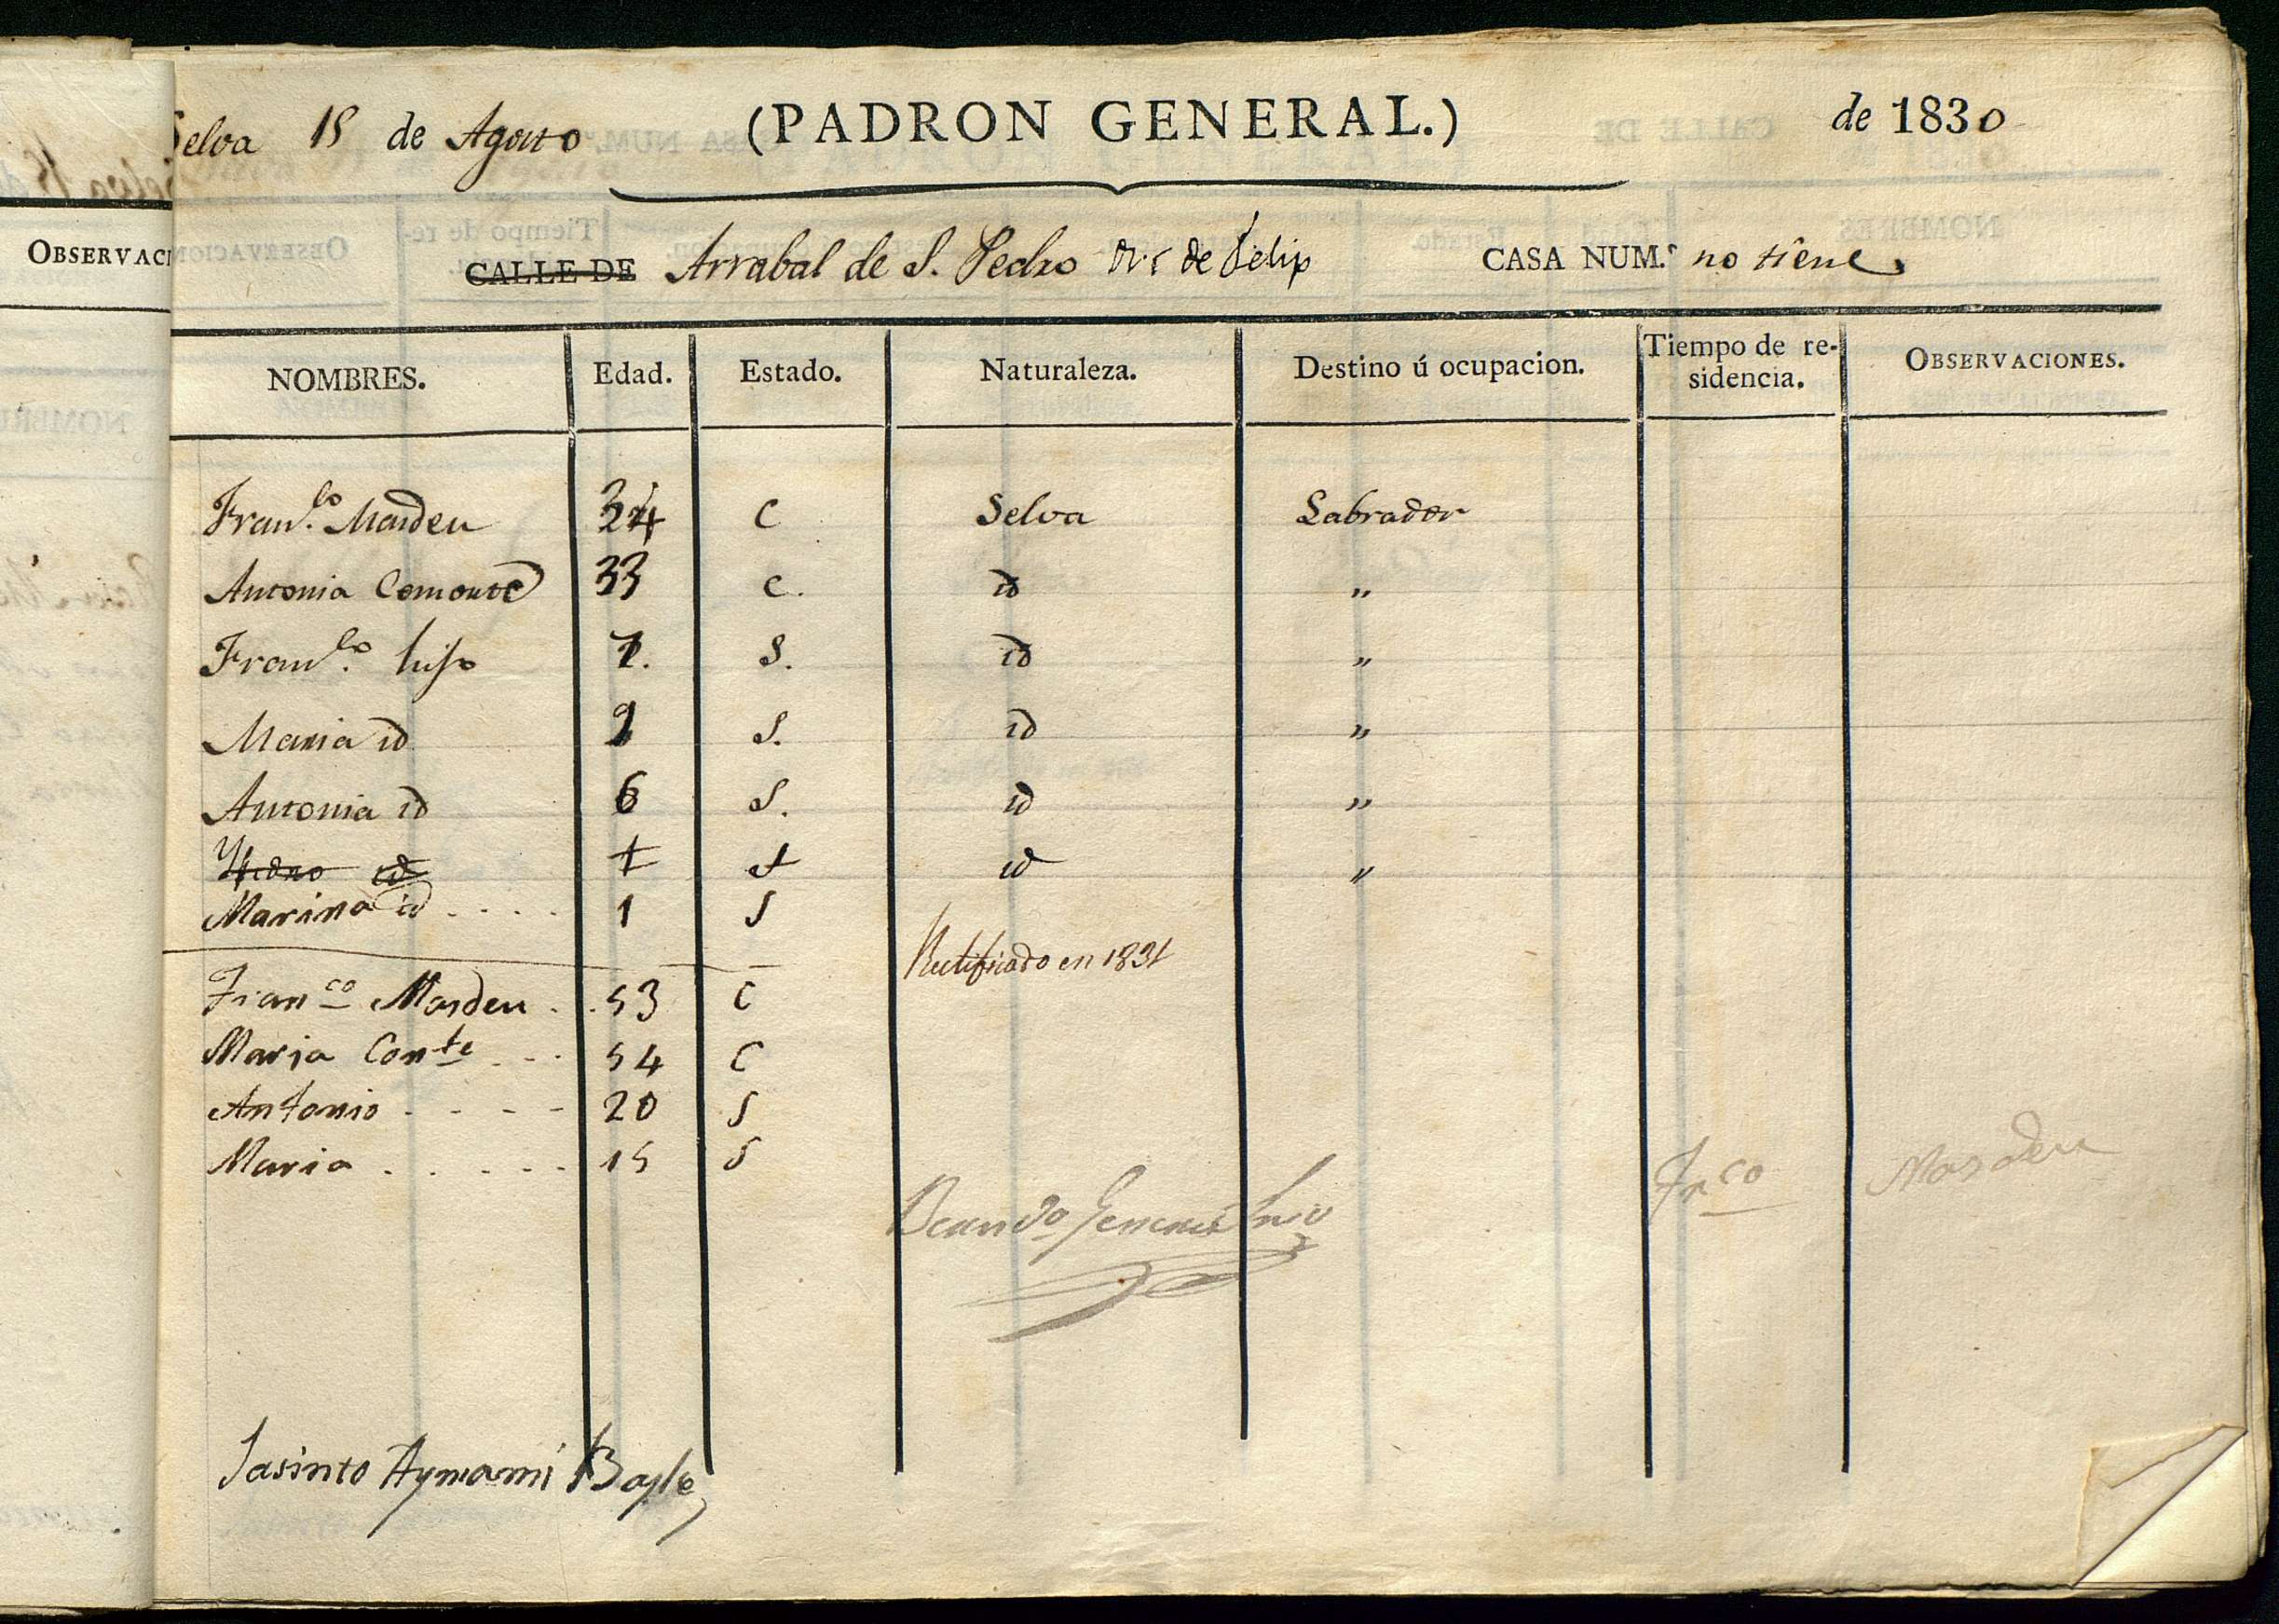 Selva 15 de Agosto (PADRON GENERAL.) de 1830
CALLE DE Arrabal de S. Pedro de Felip CASA NUM.º no tiene
OBSERVACI
NOMBRES. Edad. Estado. Naturaleza. Destino ú ocupacion. Tiempo de re- OBSERVACIONES.
sidencia.
Fran.co Masdeu 34 C Selva Labrador
Antonia 33 C. id "
Fran.co hijo 7. S. id "
Maria id 9 S. id "
Antonia id 6 S. id "
id id "
Marina id . . . . 1 S
Rectificado en 1831
Franco Masdeu . . 53 C
Maria Conte . . . 54 C
Antonio - - - - 20 S
Maria . . . . . 15 S
Frco Masdeu
Jasinto Aymamí Bayle